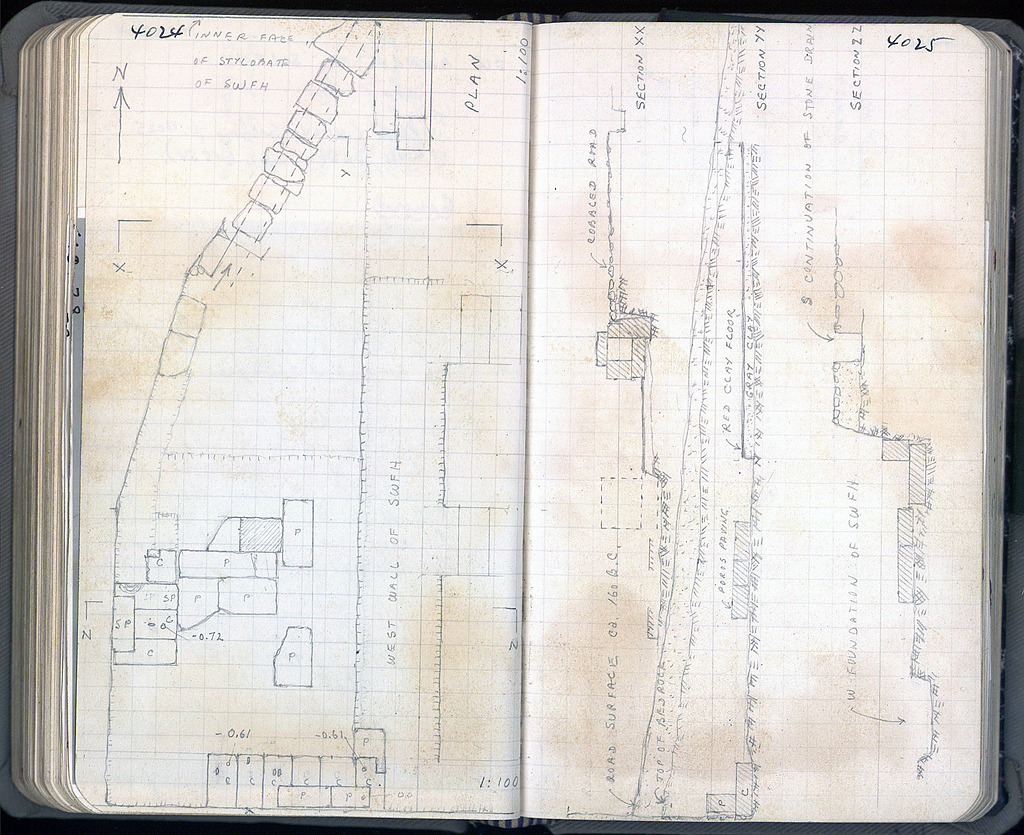 4024
INNER FACE
OF STYLOBATE
OF SWFH
N
PLAN
1:100
Y
X
X
WEST WALL OF SWFH
P
C
P
SP
P
P
SP
C
C
-0.72
P
Z
Z
-0.61
-0.61
P
C
C
C
C
C
C
P
P
1:100
4025
SECTION XX
SECTION YY
SECTION ZZ
COBBLED ROAD
S CONTINUATION OF STONE DRAIN
RED CLAY FLOOR
GRAY CLAY
POROS PAVING
ROAD SURFACE ca. 160 B.C.
TOP OF BEDROCK
W FOUNDATION OF SWFH
P
C